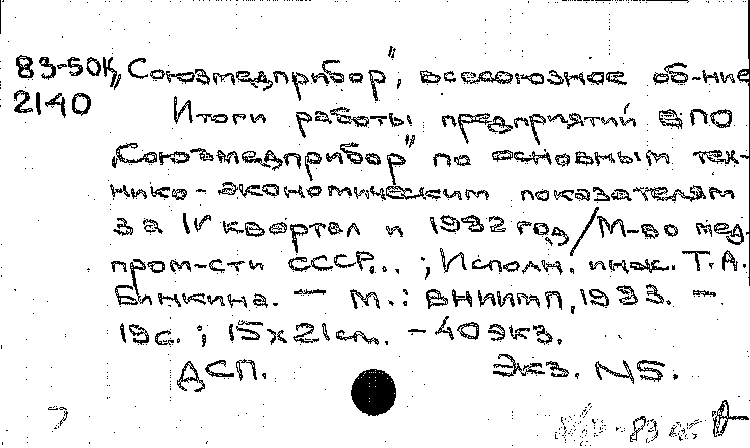 83-50К „Союзмедприбор", всесоюзное об-ние
2140 Итоги работы предприятий ВПО
„Союзмедприбор" по основным тех-
нико-экономическим показателям
за IV квартал и 1982 год / М-во мед.
пром-сти СССР...; Исполн. инж. Т.А.
Бинкина. — М.: ВНИИМП, 1983. —
19с.; 15х21см. - 40 экз.
ДСП. Экз. N5.